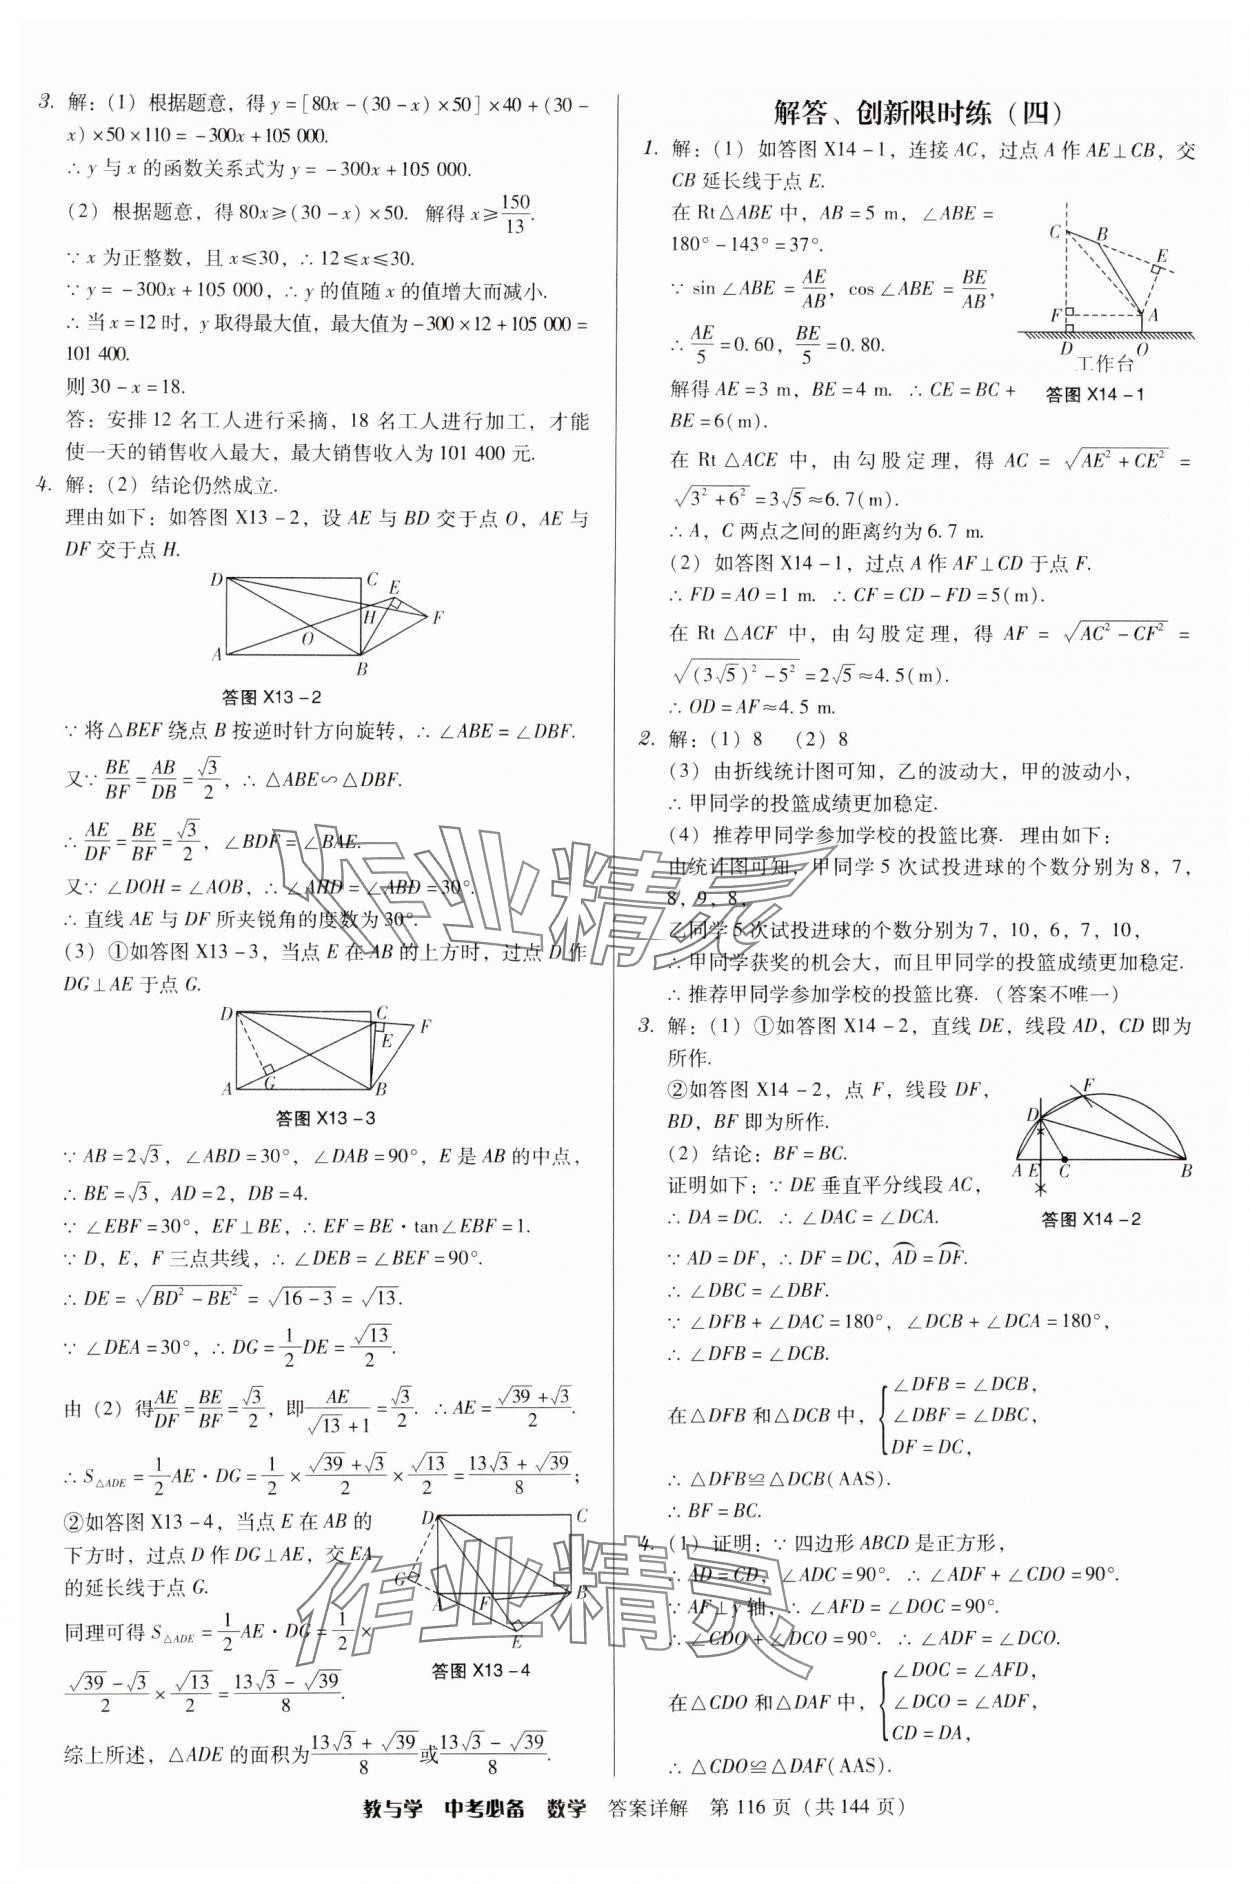 3. 解：(1) 根据题意，得 y=[80x-(30-x)×50]×40+(30-
x)×50×110=-300x+105 000.
∴ y 与 x 的函数关系式为 y=-300x+105 000.
(2) 根据题意，得 80x≥(30-x)×50. 解得 x≥150/13.
∵ x 为正整数，且 x≤30，∴ 12≤x≤30.
∵ y=-300x+105 000，∴ y 的值随 x 的值增大而减小.
∴ 当 x=12 时，y 取得最大值，最大值为 -300×12+105 000=
101 400.
则 30-x=18.
答：安排 12 名工人进行采摘，18 名工人进行加工，才能
使一天的销售收入最大，最大销售收入为 101 400 元.
4. 解：(2) 结论仍然成立.
理由如下：如答图 X13-2，设 AE 与 BD 交于点 O，AE 与
DF 交于点 H.
D C E H F O A B
答图 X13-2
∵ 将△BEF 绕点 B 按逆时针方向旋转，∴ ∠ABE=∠DBF.
又∵ BE/BF=AB/DB=√3/2，∴ △ABE∽△DBF.
∴ AE/DF=BE/BF=√3/2，∠BDF=∠BAE.
又∵ ∠DOH=∠AOB，∴ ∠AHD=∠ABD=30°.
∴ 直线 AE 与 DF 所夹锐角的度数为 30°.
(3) ①如答图 X13-3，当点 E 在 AB 的上方时，过点 D 作
DG⊥AE 于点 G.
D C F E A G B
答图 X13-3
∵ AB=2√3，∠ABD=30°，∠DAB=90°，E 是 AB 的中点，
∴ BE=√3，AD=2，DB=4.
∵ ∠EBF=30°，EF⊥BE，∴ EF=BE·tan∠EBF=1.
∵ D，E，F 三点共线，∴ ∠DEB=∠BEF=90°.
∴ DE=√(BD²-BE²)=√(16-3)=√13.
∵ ∠DEA=30°，∴ DG=1/2DE=√13/2.
由 (2) 得 AE/DF=BE/BF=√3/2，即 AE/(√13+1)=√3/2. ∴ AE=(√39+√3)/2.
∴ S△ADE=1/2AE·DG=1/2×(√39+√3)/2×√13/2=(13√3+√39)/8；
②如答图 X13-4，当点 E 在 AB 的
下方时，过点 D 作 DG⊥AE，交 EA
的延长线于点 G.
同理可得 S△ADE=1/2AE·DG=1/2×
(√39-√3)/2×√13/2=(13√3-√39)/8.
D C G A F B E
答图 X13-4
综上所述，△ADE 的面积为 (13√3+√39)/8 或 (13√3-√39)/8.
解答、创新限时练（四）
1. 解：(1) 如答图 X14-1，连接 AC，过点 A 作 AE⊥CB，交
CB 延长线于点 E.
在 Rt△ABE 中，AB=5 m，∠ABE=
180°-143°=37°.
∵ sin∠ABE=AE/AB，cos∠ABE=BE/AB，
∴ AE/5=0.60，BE/5=0.80.
解得 AE=3 m，BE=4 m. ∴ CE=BC+
BE=6(m).
C B E F A D O
工作台
答图 X14-1
在 Rt△ACE 中，由勾股定理，得 AC=√(AE²+CE²)=
√(3²+6²)=3√5≈6.7(m).
∴ A，C 两点之间的距离约为 6.7 m.
(2) 如答图 X14-1，过点 A 作 AF⊥CD 于点 F.
∴ FD=AO=1 m. ∴ CF=CD-FD=5(m).
在 Rt△ACF 中，由勾股定理，得 AF=√(AC²-CF²)=
√((3√5)²-5²)=2√5≈4.5(m).
∴ OD=AF≈4.5 m.
2. 解：(1) 8 (2) 8
(3) 由折线统计图可知，乙的波动大，甲的波动小，
∴ 甲同学的投篮成绩更加稳定.
(4) 推荐甲同学参加学校的投篮比赛. 理由如下：
由统计图可知，甲同学 5 次试投进球的个数分别为 8，7，
8，9，8，
乙同学 5 次试投进球的个数分别为 7，10，6，7，10，
∴ 甲同学获奖的机会大，而且甲同学的投篮成绩更加稳定.
∴ 推荐甲同学参加学校的投篮比赛. (答案不唯一)
3. 解：(1) ①如答图 X14-2，直线 DE，线段 AD，CD 即为
所作.
②如答图 X14-2，点 F，线段 DF，
BD，BF 即为所作.
(2) 结论：BF=BC.
证明如下：∵ DE 垂直平分线段 AC，
∴ DA=DC. ∴ ∠DAC=∠DCA.
F D A E C B
答图 X14-2
∵ AD=DF，∴ DF=DC，⌒AD=⌒DF.
∴ ∠DBC=∠DBF.
∵ ∠DFB+∠DAC=180°，∠DCB+∠DCA=180°，
∴ ∠DFB=∠DCB.
在△DFB 和△DCB 中，{∠DFB=∠DCB，
∠DBF=∠DBC，
DF=DC，
∴ △DFB≌△DCB(AAS).
∴ BF=BC.
4. (1) 证明：∵ 四边形 ABCD 是正方形，
∴ AD=CD，∠ADC=90°. ∴ ∠ADF+∠CDO=90°.
∵ AF⊥y 轴，∴ ∠AFD=∠DOC=90°.
∴ ∠CDO+∠DCO=90°. ∴ ∠ADF=∠DCO.
在△CDO 和△DAF 中，{∠DOC=∠AFD，
∠DCO=∠ADF，
CD=DA，
∴ △CDO≌△DAF(AAS).
作业精灵
作业精灵
教与学 中考必备 数学 答案详解 第 116 页（共 144 页）